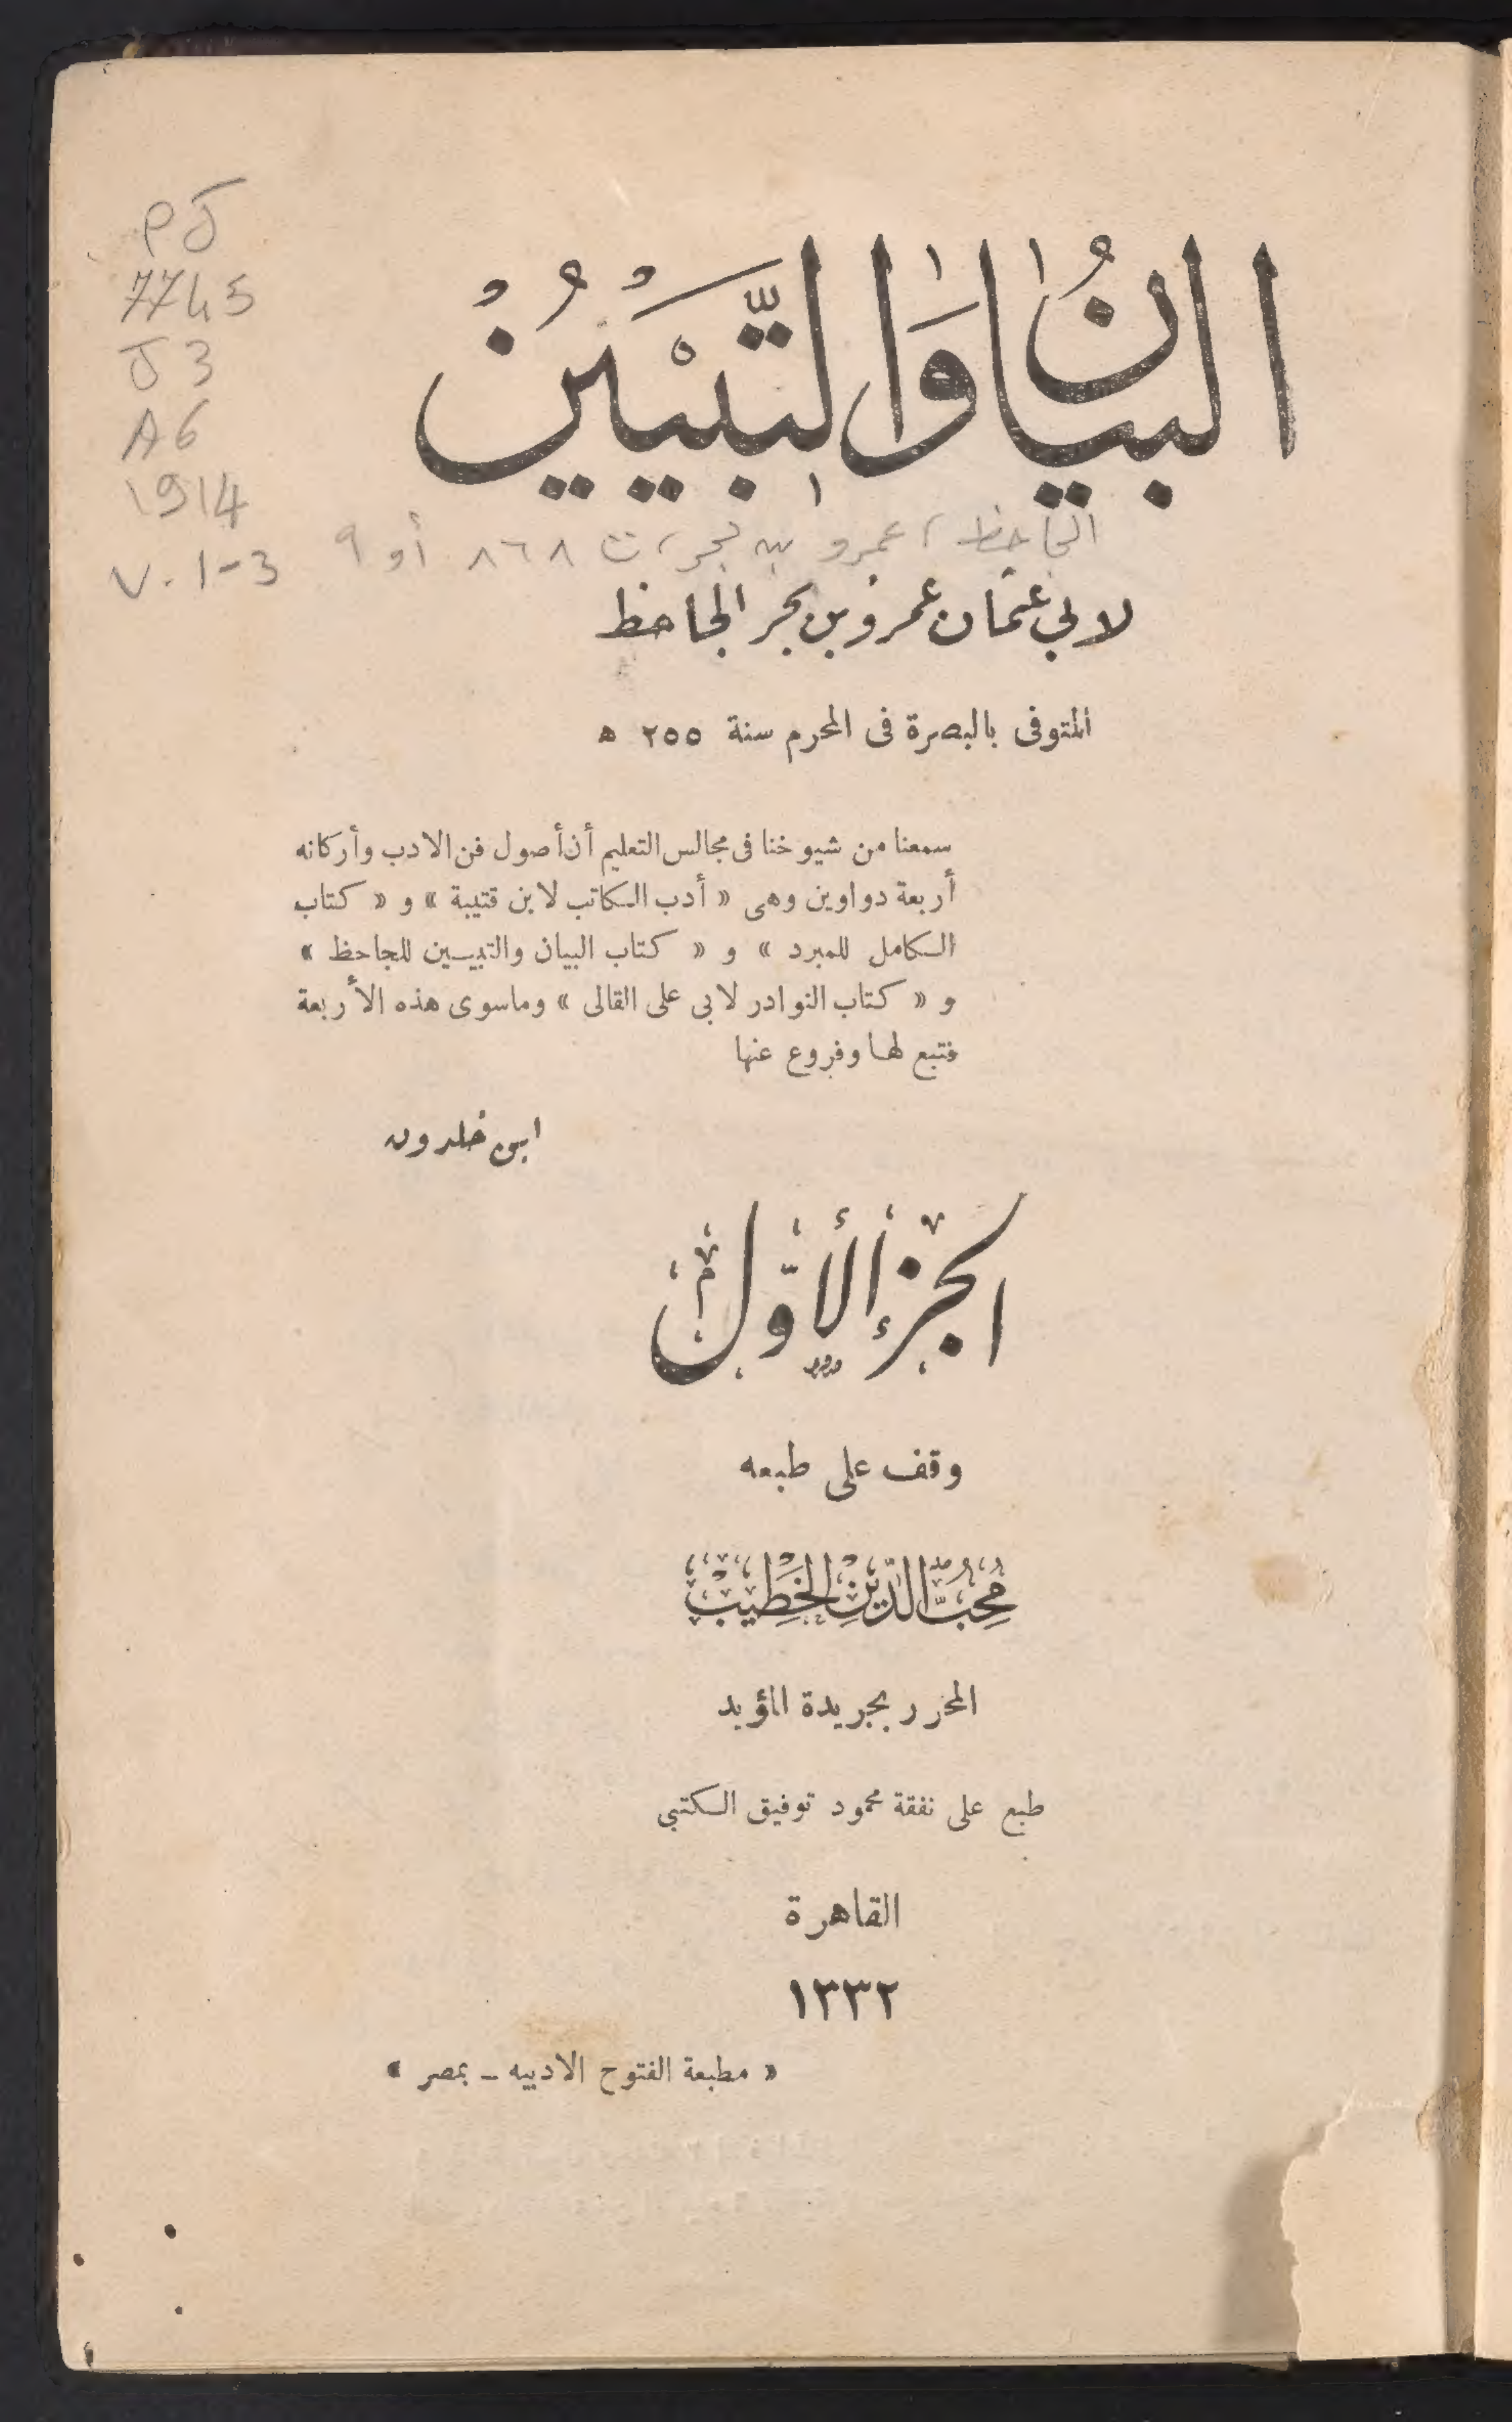 PJ
7745
J3
A6
1914
v. 1-3
البيان والتبيين
الجاحظ، عمرو بن بحر، ت ٨٦٨ أو ٩
لابي عثمان عمرو بن بحر الجاحظ
المتوفى بالبصرة فى المحرم سنة ٢٥٥ ه
سمعنا من شيوخنا فى مجالس التعليم أن أصول فن الادب وأركانه
أربعة دواوين وهى « أدب الكاتب لابن قتيبة » و « كتاب
الكامل للمبرد » و « كتاب البيان والتبيين للجاحظ »
و « كتاب النوادر لابى على القالى » وماسوى هذه الأربعة
فتبع لها وفروع عنها
ابن خلدون
الجزء الأوّل
وقف على طبعه
مُحِبُّ الدِّيْنِ الخَطِيْبْ
المحرر بجريدة المؤيد
طبع على نفقة محمود توفيق الكتبى
القاهرة
١٣٣٢
« مطبعة الفتوح الادبيه ـ بمصر »